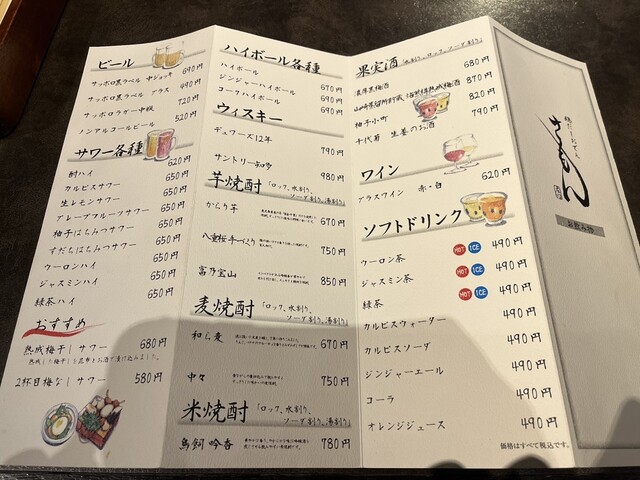 ビール
サッポロ黒ラベル 中ジョッキ 690円
サッポロ黒ラベル グラス 490円
サッポロラガー中瓶 720円
ノンアルコールビール 520円
サワー各種
酎ハイ 620円
カルピスサワー 650円
生レモンサワー 650円
グレープフルーツサワー 650円
柚子はちみつサワー 650円
すだちはちみつサワー 650円
ウーロンハイ 650円
ジャスミンハイ 650円
緑茶ハイ 650円
おすすめ
熟成梅干しサワー 680円
熟成した梅干しと昆布をお酒で漬け込みました。
2杯目梅なしサワー 580円
ハイボール各種
ハイボール 670円
ジンジャーハイボール 690円
コークハイボール 690円
ウィスキー
デュワーズ12年 790円
サントリー知多 980円
芋焼酎 「ロック、水割り、
ソーダ割り、湯割り」
からり芋 670円
八重桜手づくり 750円
富乃宝山 850円
麦焼酎 「ロック、水割り、
ソーダ割り、湯割り」
和ら麦 670円
中々 750円
米焼酎 「ロック、水割り、
ソーダ割り、湯割り」
鳥飼 吟香 780円
果実酒 「水割り、ロック、ソーダ割り」
濃厚黒梅酒 680円
山崎蒸留所貯蔵 焙煎樽熟成梅酒 870円
柚子小町 820円
千代菊 生姜のお酒 790円
ワイン
グラスワイン 赤・白 620円
ソフトドリンク
ウーロン茶 HOT ICE 490円
ジャスミン茶 HOT ICE 490円
緑茶 HOT ICE 490円
カルピスウォーター 490円
カルピスソーダ 490円
ジンジャーエール 490円
コーラ 490円
オレンジジュース 490円
価格はすべて税込です。
鶏だしおでん
さもん
お飲み物